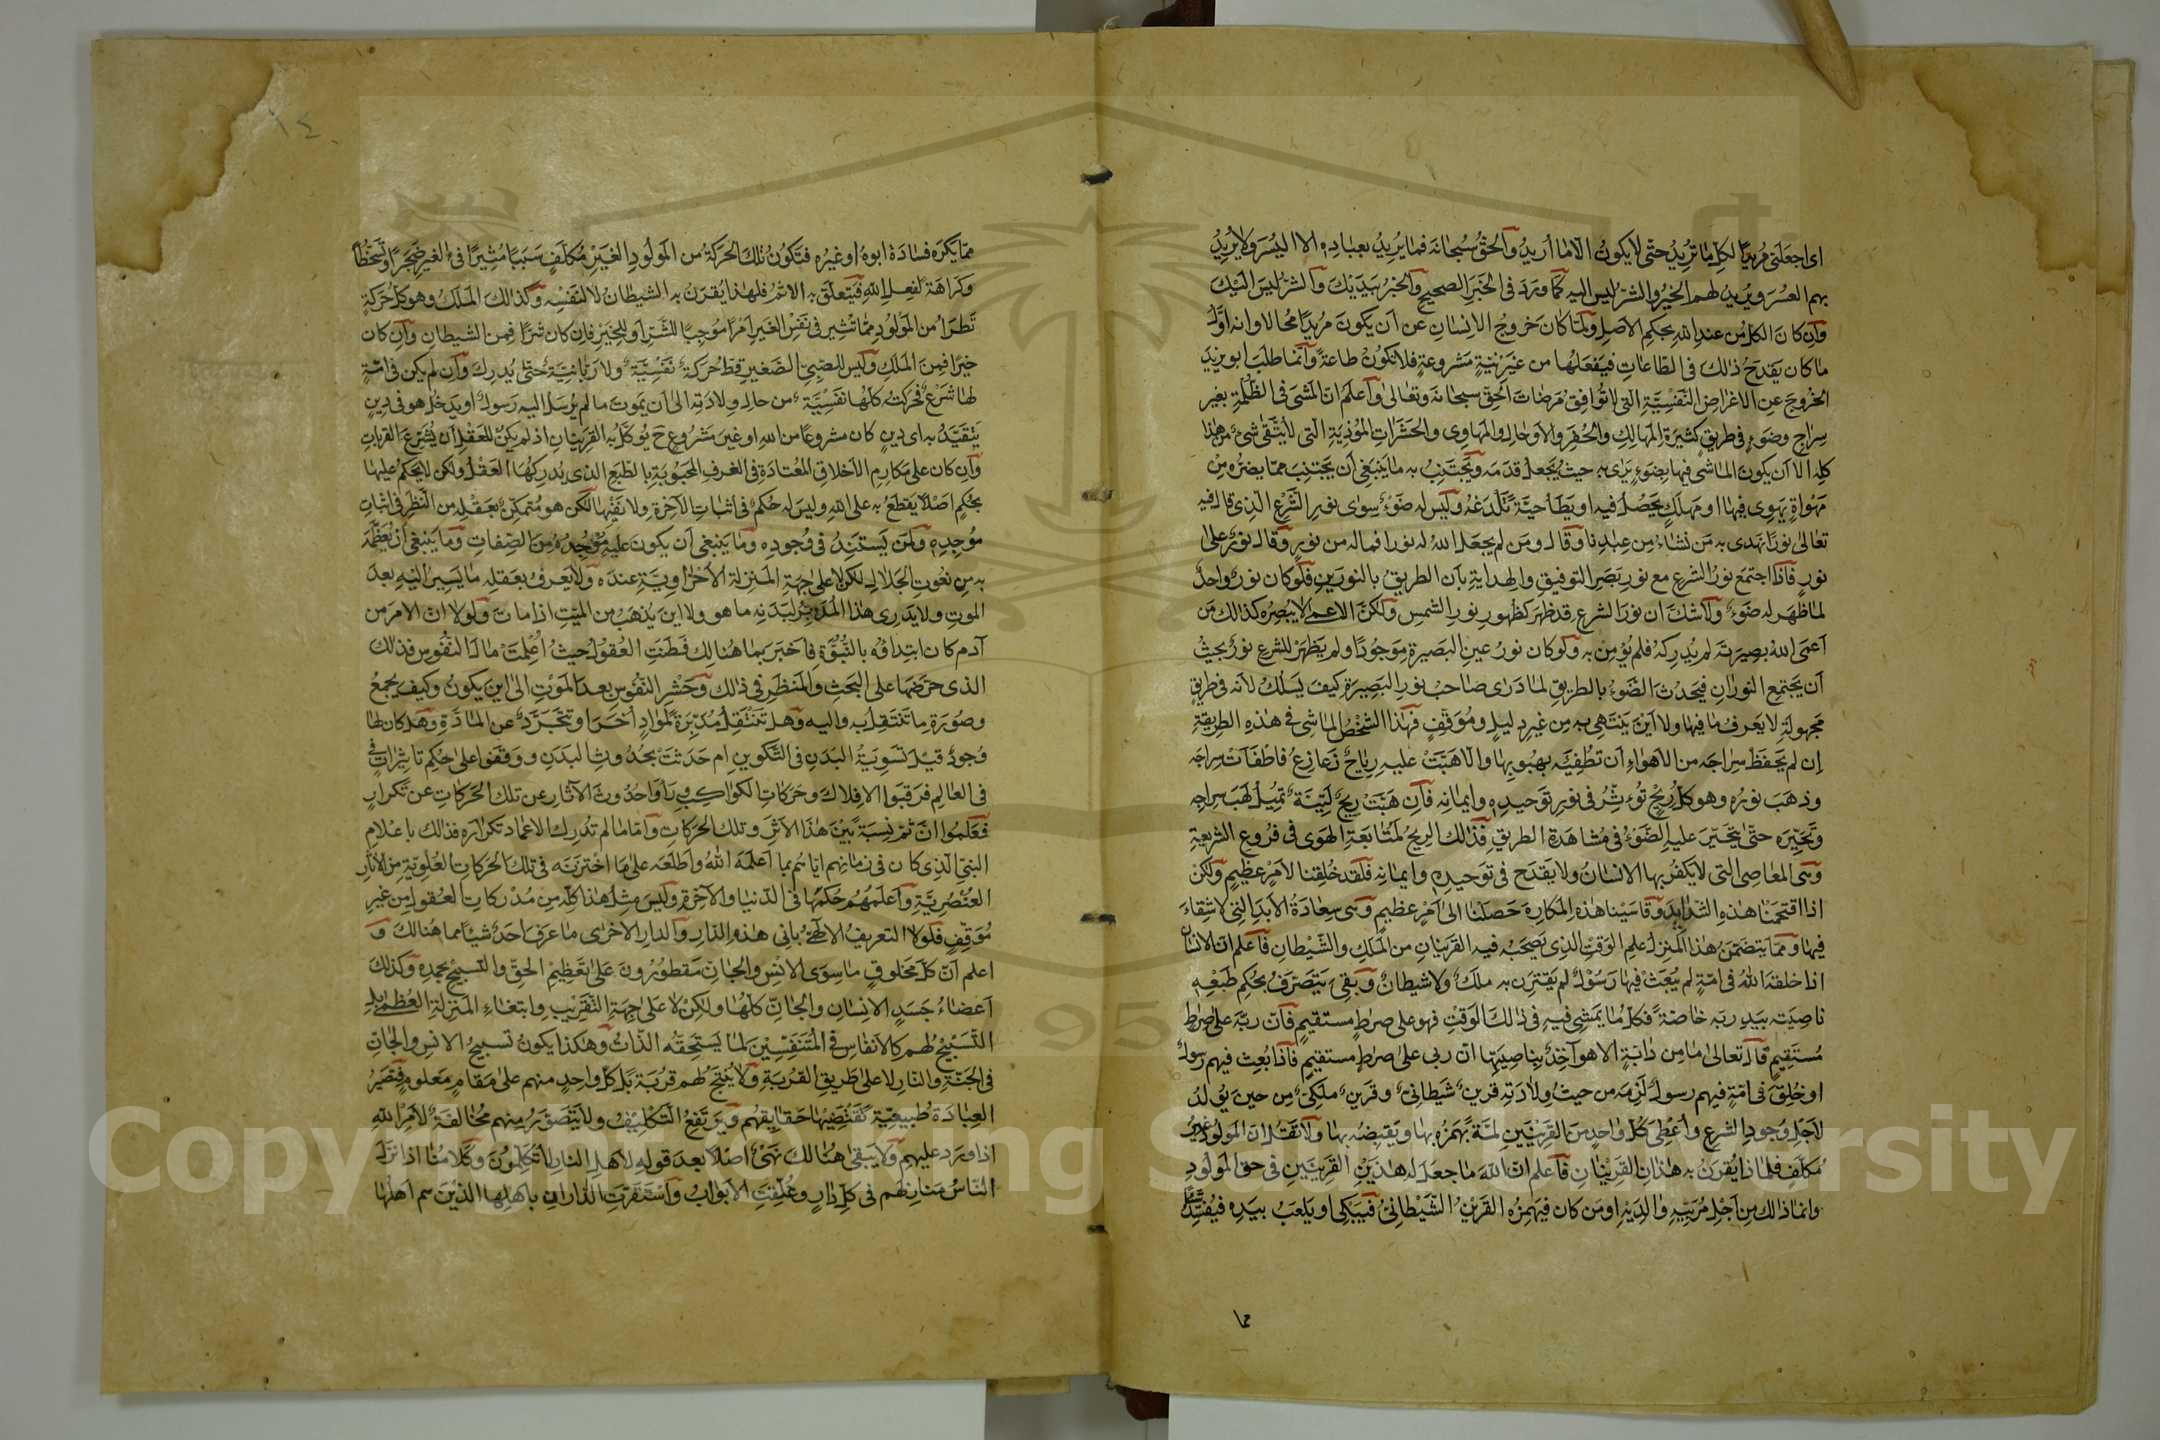 اى اجعلنى مريدًا لكل ما تريد حتى لا يكون الا ما اريد والحق سبحانه فما يريد بعباده الا اليسر ولا يريد
بهم العسر ويريد لهم الخير والشر ليس اليه كما ورد فى الخبر الصحيح والخير بيديك والشر ليس اليك
وان كان الكل من عند الله بحكم الاصل ولما كان خروج الانسان عن ان يكون مريدًا محالا وانه اول
ما كان يقدح ذالك فى الطاعات فيفعلها من غير نية مشروعة فلا تكون طاعة وانما طلب ابو يزيد
الخروج عن الاغراض النفسية التى لا توافق مرضات الحق سبحانه وتعالى واعلم ان المشى فى الظلمة بغير
سراج وضوء فى طريق كثيرة المهالك والحفر والاوحال والمهاوى والحشرات الموذية التى لا يتقى شىء من هذا
كله الا ان يكون الماشى فيها بضوء يرى به حيث يجعل قدمه ويجتنب به ما ينبغى ان يجتنب مما يضره من
مهواة يهوى فيها او مهلك يحصل فيه او يطأ حية تلدغه وليس له ضوء سوى نور الشرع الذى قال فيه
تعالى نورًا نهدى به من نشاء من عبادنا وقال ومن لم يجعل الله له نورا فما له من نور وقال نور على
نور فاذا اجتمع نور الشرع مع نور بصر التوفيق والهداية بان الطريق بالنورين فلو كان نور واحد
لما ظهر له ضوء ولا شك ان نور الشرع قد ظهر كظهور نور الشمس ولكن الاعمى لا يبصره كذالك من
اعمى الله بصيرته لم يدركه فلم يؤمن به ولو كان نور عين البصيرة موجودًا ولم يظهر للشرع نور بحيث
ان يجتمع النوران فيحدث الضوء بالطريق لما درى صاحب نور البصيرة كيف يسلك لانه فى طريق
مجهولة لا يعرف ما فيها ولا اين ينتهى به من غير دليل وموقف فهذا الشخص الماشى فى هذه الطريقة
ان لم يحفظ سراجه من الاهواء ان تطفيه بهبوبها والا هبت عليه رياح زعازع فاطفات سراجه
وذهب نوره وهو كل ريح تؤثر فى نور توحيده وايمانه فان هبت ريح لينة تميل لهب سراجه
وتحيره حتى يتحير عليه الضوء فى مشاهدة الطريق فذلك الريح لمتابعة الهوى فى فروع الشريعة
وهى المعاصى التى لا يكفر بها الانسان ولا يقدح فى توحيده وايمانه فلقد خلقنا لامر عظيم ولكن
اذا اقتحمنا هذه الشدايد وقاسينا هذه المكاره حصلنا الى امر عظيم وهى سعادة الابد التى لا شقاء
فيها ومما يتضمن هذا المنزل علم الوقت الذى يصحب فيه القرينان من الملك والشيطان فاعلم ان الانسان
اذا خلقه الله فى امة لم يبعث فيها رسول لم يقترن به ملك ولا شيطان وبقى يتصرف بحكم طبعه
ناصيته بيد ربه خاصة فكل ما يمشى فيه فى ذالك الوقت فهو على صراط مستقيم فان ربه على صراط
مستقيم قال تعالى ما من دابة الا هو آخذ بناصيتها ان ربى على صراط مستقيم فاذا بعث فيهم رسول
او خلق فى امة فيهم رسول لزمه من حيث ولادته قرين شيطانى وقرين ملكى من حين يولد
لاجل وجود الشرع واعطى كل واحد من القرينين لمة يهمزه بها ويقبضه بها ولا تقل ان المولود غير
مكلف فلماذا يقرن به هذان القرينان فاعلم ان الله ما جعل له هذين القرينين فى حق المولود
وانما ذالك من اجل مربيه والديه او من كان فيهمزه القرين الشيطانى فيبكى او يلعب بيده فيفسد شيئا
مما
١٤
مما يكره فساده ابوه او غيره فتكون تلك الحركة من المولود الغير مكلف سببا مثيرًا فى الغير ضجرًا وتسخطًا
وكراهة لفعل الله فيتعلق به الاثم فلهذا يقرن به الشيطان لا لنفسه وكذالك الملك وهو كل حركة
تطرأ من المولود مما تثير فى نفس الغير امرًا موجبًا للشر او للخير فان كان شرًا فمن الشيطان وان كان
خيرًا فمن الملك وليس للصبى الصغير قط حركة نفسية ولا ربانية حتى يدرك وان لم يكن فى امة
لها شرع فحركته كلها نفسية من حال ولادته الى ان يموت ما لم يرسل اليه رسول او يدخل هو فى دين
يتقيد به اى دين كان مشروعًا من الله او غير مشروع ح يوكل به القرينان اذ لم يكن للعقل ان يشرع القربات
وان كان على مكارم الاخلاق المعتادة فى العرف المحبوبة بالطبع الذى يدركها العقل ولكن لا يحكم عليها
بحكم اصلا يقطع به على الله وليس له حكم فى اثبات الآخرة ولا نفيها لكن هو متمكن بعقله من النظر فى اثبات
موجده ولمن يستند فى وجوده وما ينبغى ان يكون عليه موجده من الصفات وما ينبغى ان يعظمه
به من نعوت الجلال لكن لا على جهة المنزلة الاخراوية عنده ولا يعرف بعقله ما يسير اليه بعد
الموت ولا يدرى هذا المدبر لبدنه ما هو ولا اين يذهب من الميت اذا مات ولولا ان الامر من
آدم كان ابتداؤه بالنبوة فاخبر بما هنالك فطنت العقول حيث اعلمت مال النفوس فذلك
الذى حرضها على البحث والنظر فى ذالك وحشر النفوس بعد الموت الى اين يكون وكيف يجمع
وصورة ما تنتقل به واليه وهل تنتقل مدبرة لمواد اخر او تتجرد عن المادة وهل كان لها
وجود قبل تسوية البدن فى التكوين ام حدثت بحدوث البدن ووقفوا على حكم تاثيرات فى
فى العالم فرقبوا الافلاك وحركات الكواكب وراوا حدوث الآثار عن تلك الحركات عن تكرار
فعلموا ان ثم نسبة بين هذا الاثر وتلك الحركات واما ما لم تدرك الاعمار تكراره فذالك باعلام
النبى الذى كان فى زمانهم اياهم بما اعلمه الله واطلعه على ما اخترنه فى تلك الحركات العلوية من الآثار
العنصرية واعلمهم حكمها فى الدنيا والآخرة وليس مثل هذا كله من مدركات العقول من غير
موقف فلولا التعريف الالهى بانى هذه الدار والدار الاخرى ما عرف احد شيئا مما هنالك و
اعلم ان كل مخلوق ما سوى الانس والجان مفطورون على تعظيم الحق والتسبيح بحمده وكذلك
اعضاء جسد الانسان والجان كلها ولكن لا على جهة التقريب وابتغاء المنزلة العظمى بل
التسبيح لهم كالانفاس فى المتنفسين لما يستحقه الذات وهكذا يكون تسبيح الانس والجان
فى الجنة والنار لا على طريق القربة ولا ينتج لهم قربة بل كل واحد منهم على مقام معلوم فتصير
العبادة طبيعية تقتضيها حقايقهم ويرتفع التكليف ولا يتصور منهم مخالفة لامر الله
اذا ورد عليهم ولا يبقى هنالك نهى اصلا بعد قوله لاهل النار لا تكلمون وكلامنا اذا نزل
الناس منازلهم فى كل دار وغلقت الابواب واستقرت الداران باهلها الذين هم اهلها